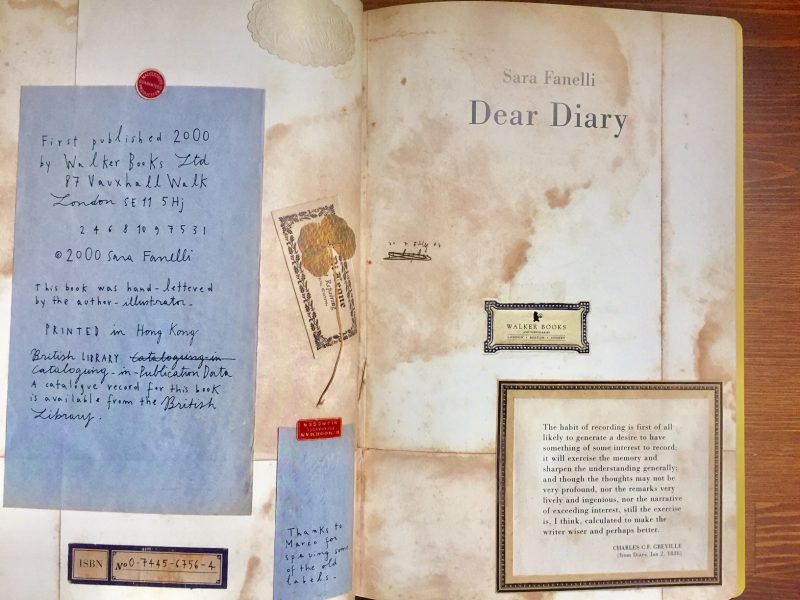 First published 2000
by Walker Books Ltd
87 Vauxhall Walk
London SE11 5HJ
2 4 6 8 10 9 7 5 3 1
© 2000 Sara Fanelli
This book was hand-lettered
by the author-illustrator.
PRINTED in Hong Kong
British LIBRARY Cataloguing-in
Cataloguing-in-Publication Data
A catalogue record for this book
is available from the British
Library.
ISBN
No 0-7445-6756-4
Repairing
Thanks to
Marco for
sparing some
of the old
labels.
Sara Fanelli
Dear Diary
WALKER BOOKS
AND SUBSIDIARIES
LONDON • BOSTON • SYDNEY
The habit of recording is first of all
likely to generate a desire to have
something of some interest to record;
it will exercise the memory and
sharpen the understanding generally;
and though the thoughts may not be
very profound, nor the remarks very
lively and ingenious, nor the narrative
of exceeding interest, still the exercise
is, I think, calculated to make the
writer wiser and perhaps better.
CHARLES C.F. GREVILLE
(from Diary, Jan 2, 1838)